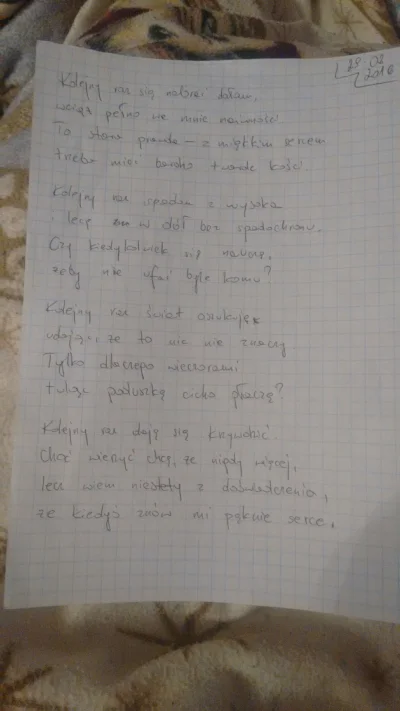 29.02
2016
Kolejny raz się nabrać dałam,
wciąż pełno we mnie naiwności
To stara prawda – z miękkim sercem
trzeba mieć bardzo twarde kości.
Kolejny raz spadam z wysoka
i lecę w dół bez spadochronu.
Czy kiedykolwiek się nauczę,
żeby nie ufać byle komu?
Kolejny raz świat oszukuję
udając że to nic nie znaczy
Tylko dlaczego wieczorami
tuląc poduszkę cicho płaczę?
Kolejny raz daję się krzywdzić
Choć wierzyć chcę, że nigdy więcej,
lecz wiem niestety z doświadczenia,
że kiedyś znów mi pęknie serce.